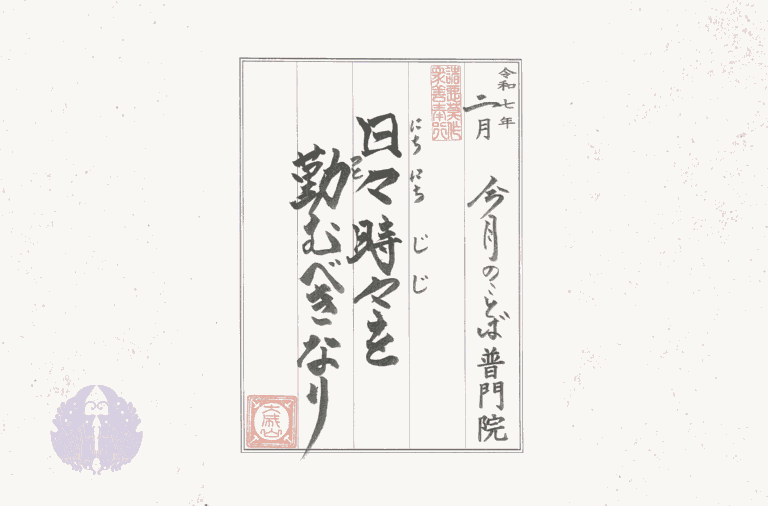 令和七年
二月
今月のことば 普門院
諸悪莫作
衆善奉行
にちにち じじ
日々時々を
勤むべきなり